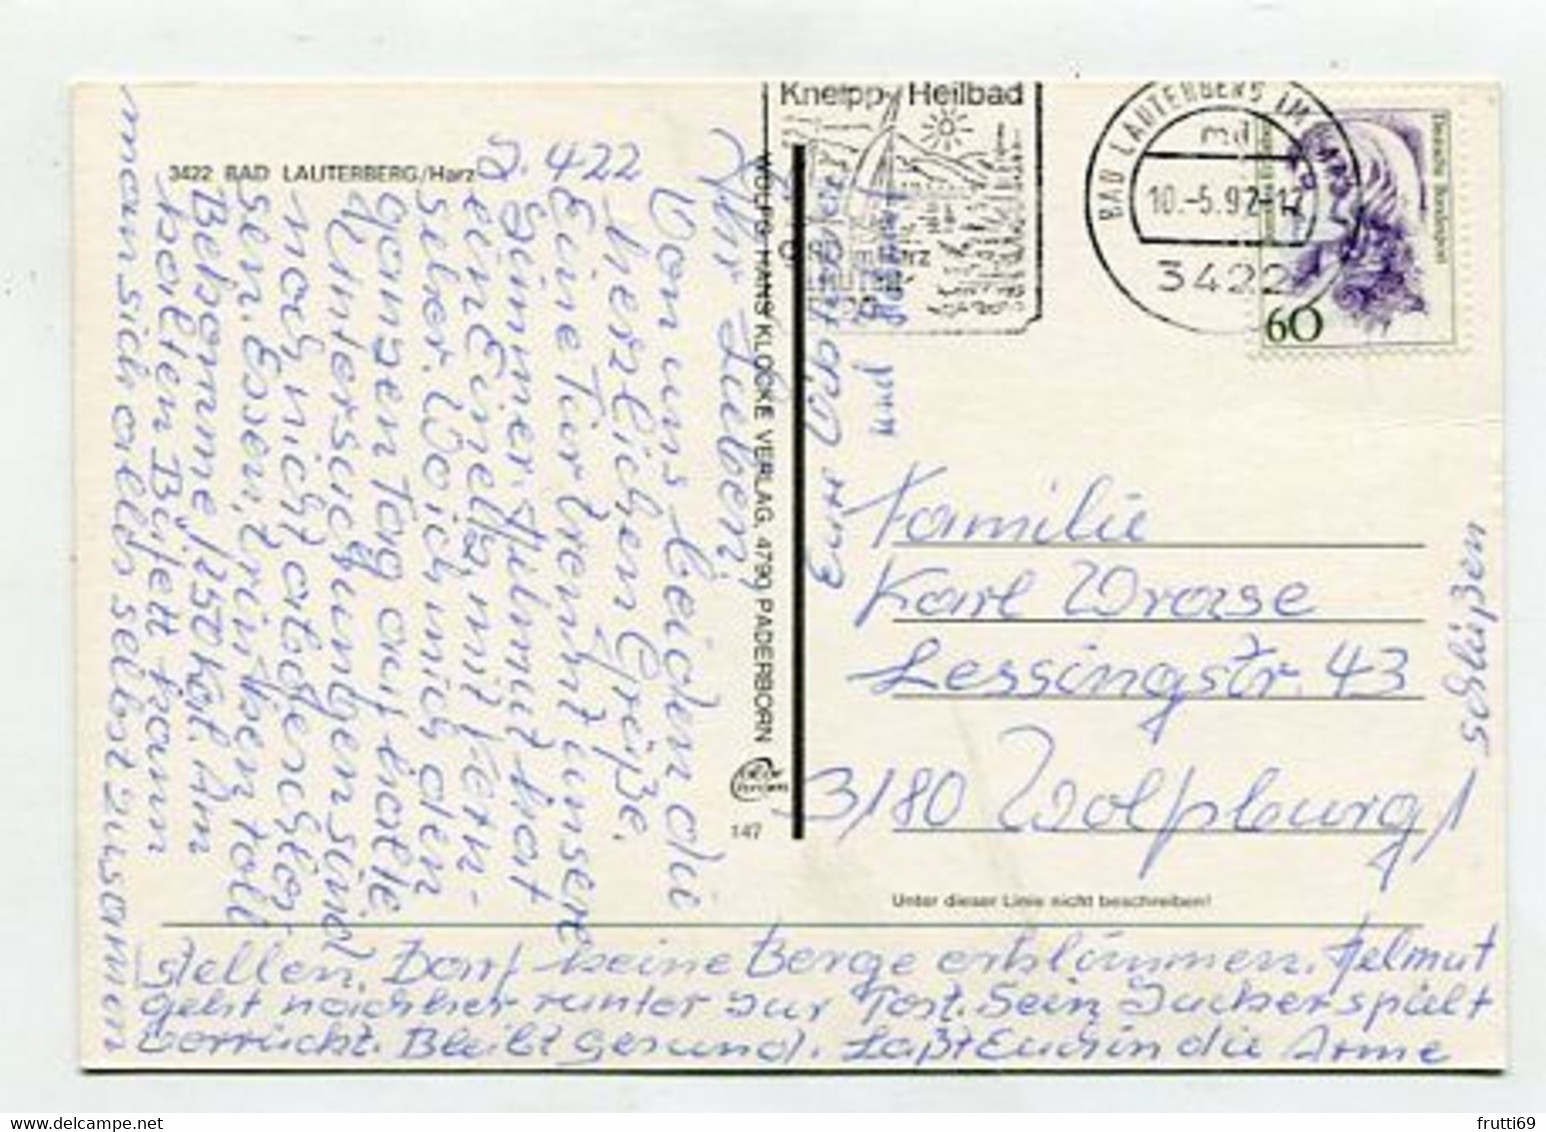 3422 BAD LAUTERBERG/Harz
Z. 422
Ihr Lieben,
Von uns beiden die
herzlichen Grüße.
Eine Tür trennt unsere
Zimmer. Helmut hat
ein Einzelz. mit Fern-
seher. Wo ich mich den
ganzen Tag aufhalte.
Untersuchungen sind
noch nicht abgeschlos-
sen. Essen, trinken toll
Bekomme 1250 Kal. Am
kalten Büfett kann
man sich alles selbst zusammen
stellen. Darf keine Berge erklimmen. Helmut
geht nachher runter zur Post. Sein Zucker spielt
verrückt. Bleibt gesund. Laßt Euch in die Arme
schließen
und
WOLFG. HANS KLOCKE VERLAG, 4790 PADERBORN
147
Kneipp-Heilbad
BAD LAUTERBERG IM HARZ
10.-5.92-17
3422
Deutsche Bundespost
60
Familie
Karl Wrase
Lessingstr. 43
3180 Wolfsburg 1
Unter dieser Linie nicht beschreiben!
frutti69